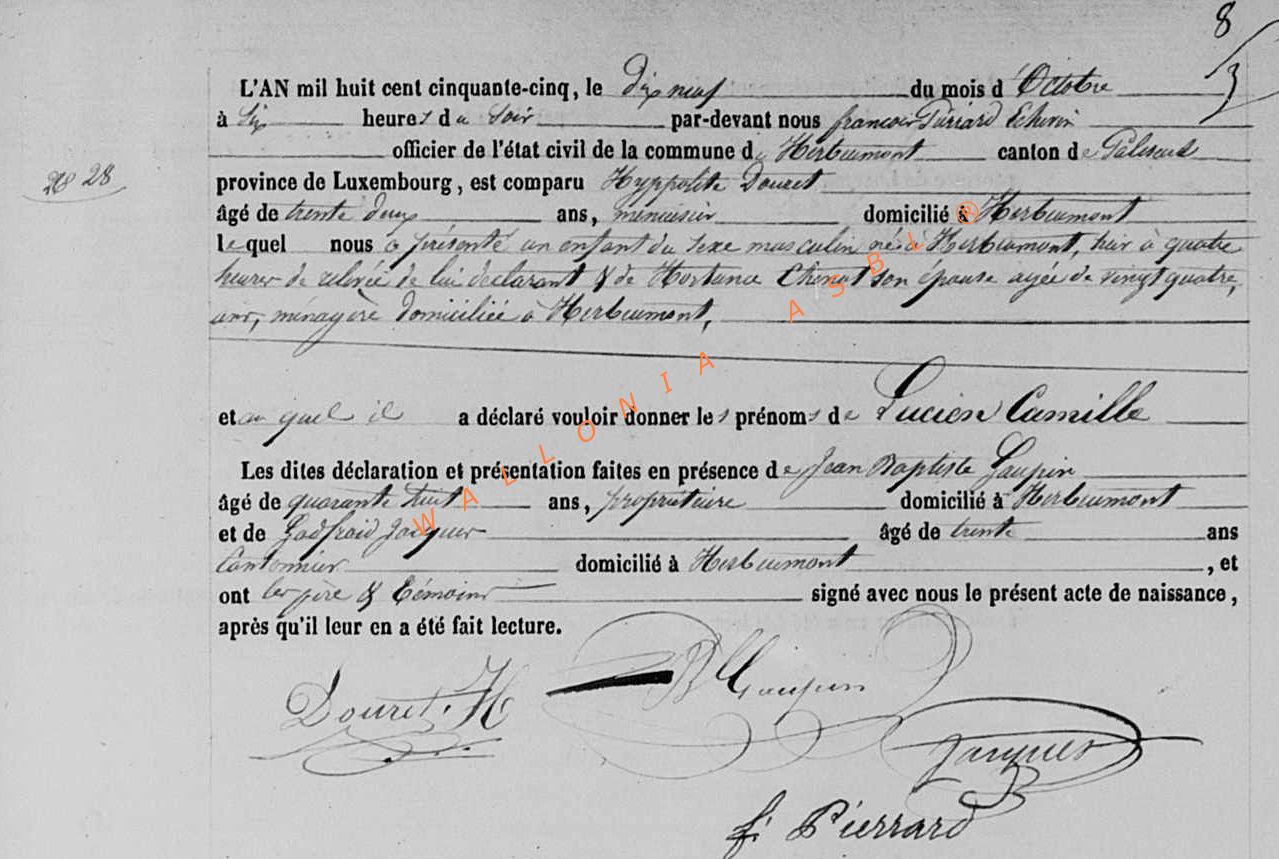 8
3
28 28
L'AN mil huit cent cinquante-cinq, le dix neuf du mois d'Octobre
à six heures du soir par-devant nous françois Pierrard Echevin
officier de l'état civil de la commune de Herbeumont canton de Paliseul
province de Luxembourg, est comparu Hyppolite Douret
âgé de trente deux ans, menuisier domicilié à Herbeumont
lequel nous a présenté un enfant du sexe masculin né à Herbeumont, hier à quatre
heures de relevée de lui déclarant & de Hortance son épouse agée de vingt quatre,
ans, ménagère domiciliée à Herbeumont,
et au quel il a déclaré vouloir donner les prénoms de Lucien Camille
Les dites déclaration et présentation faites en présence de Jean Baptiste Gaupin
âgé de quarante huit ans, propriétaire domicilié à Herbeumont
et de Godfroid Jacques âgé de trente ans
Cantonnier domicilié à Herbeumont, et
ont les père & témoins signé avec nous le présent acte de naissance,
après qu'il leur en a été fait lecture.
Douret. H
JB Gaupin
Jacques
f. Pierrard
WALLONIA ASBL ®